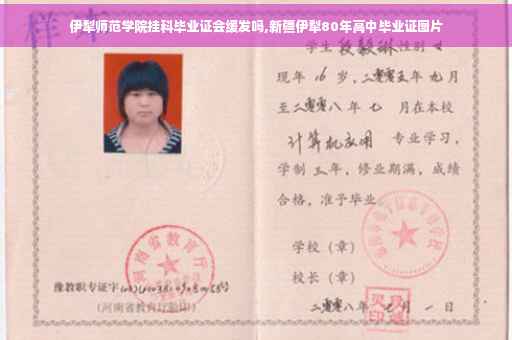 伊犁师范学院挂科毕业证会缓发吗,新疆伊犁80年高中毕业证图片
样本
学生 段毅琳 性别 女
现年 16 岁，二零零五年 九月
至二零零八年 七 月在本校
计算机应用 专业学习，
学制 三年，修业期满，成绩
合格，准予毕业
学校（章）
校长（章）
河南省教育厅
豫教职专证字
(河南省教育厅验印)
二零零八年 月 一 日